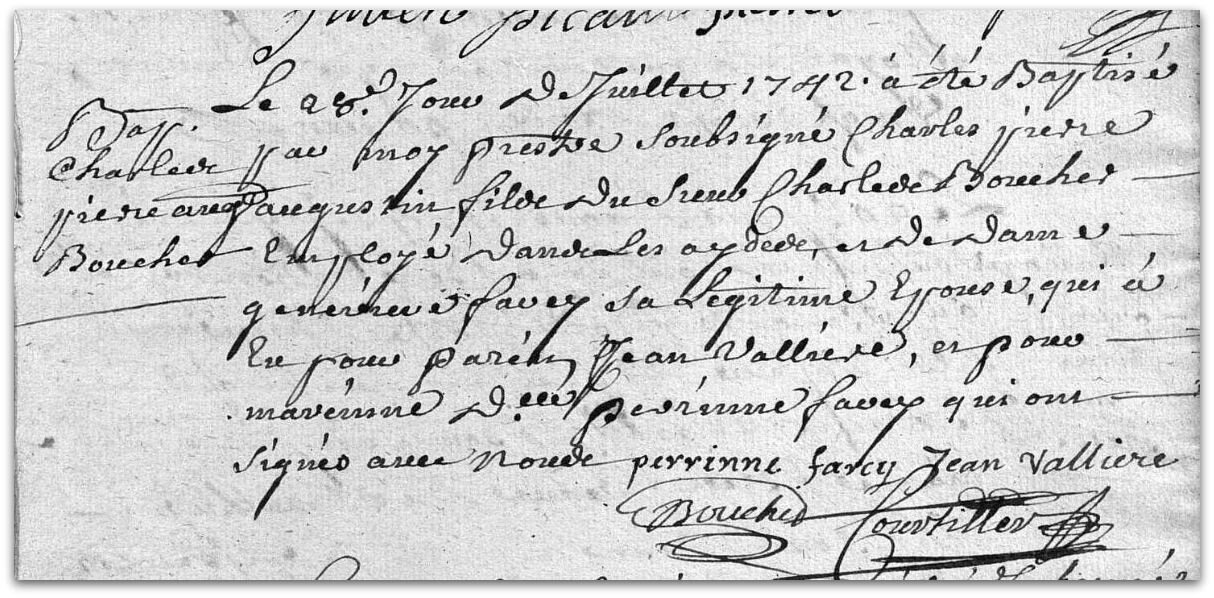 Bap.
Charles
pierre aug
Boucher
Le 28.e Jour de Juillet 1742. à été Baptisé
par moy prestre soubsigné Charles pierre
augustin fils du Sieur Charles Boucher
Employé dans Les aydes, et de dame
genevieve farcy sa Légitime Epouse, qui à
Eu pour parein Jean Valliere, et pour
mareinne D.elle perrinne farcy qui ont
signés avec Nous perrinne farcy Jean Valliere
Boucher Courtiller